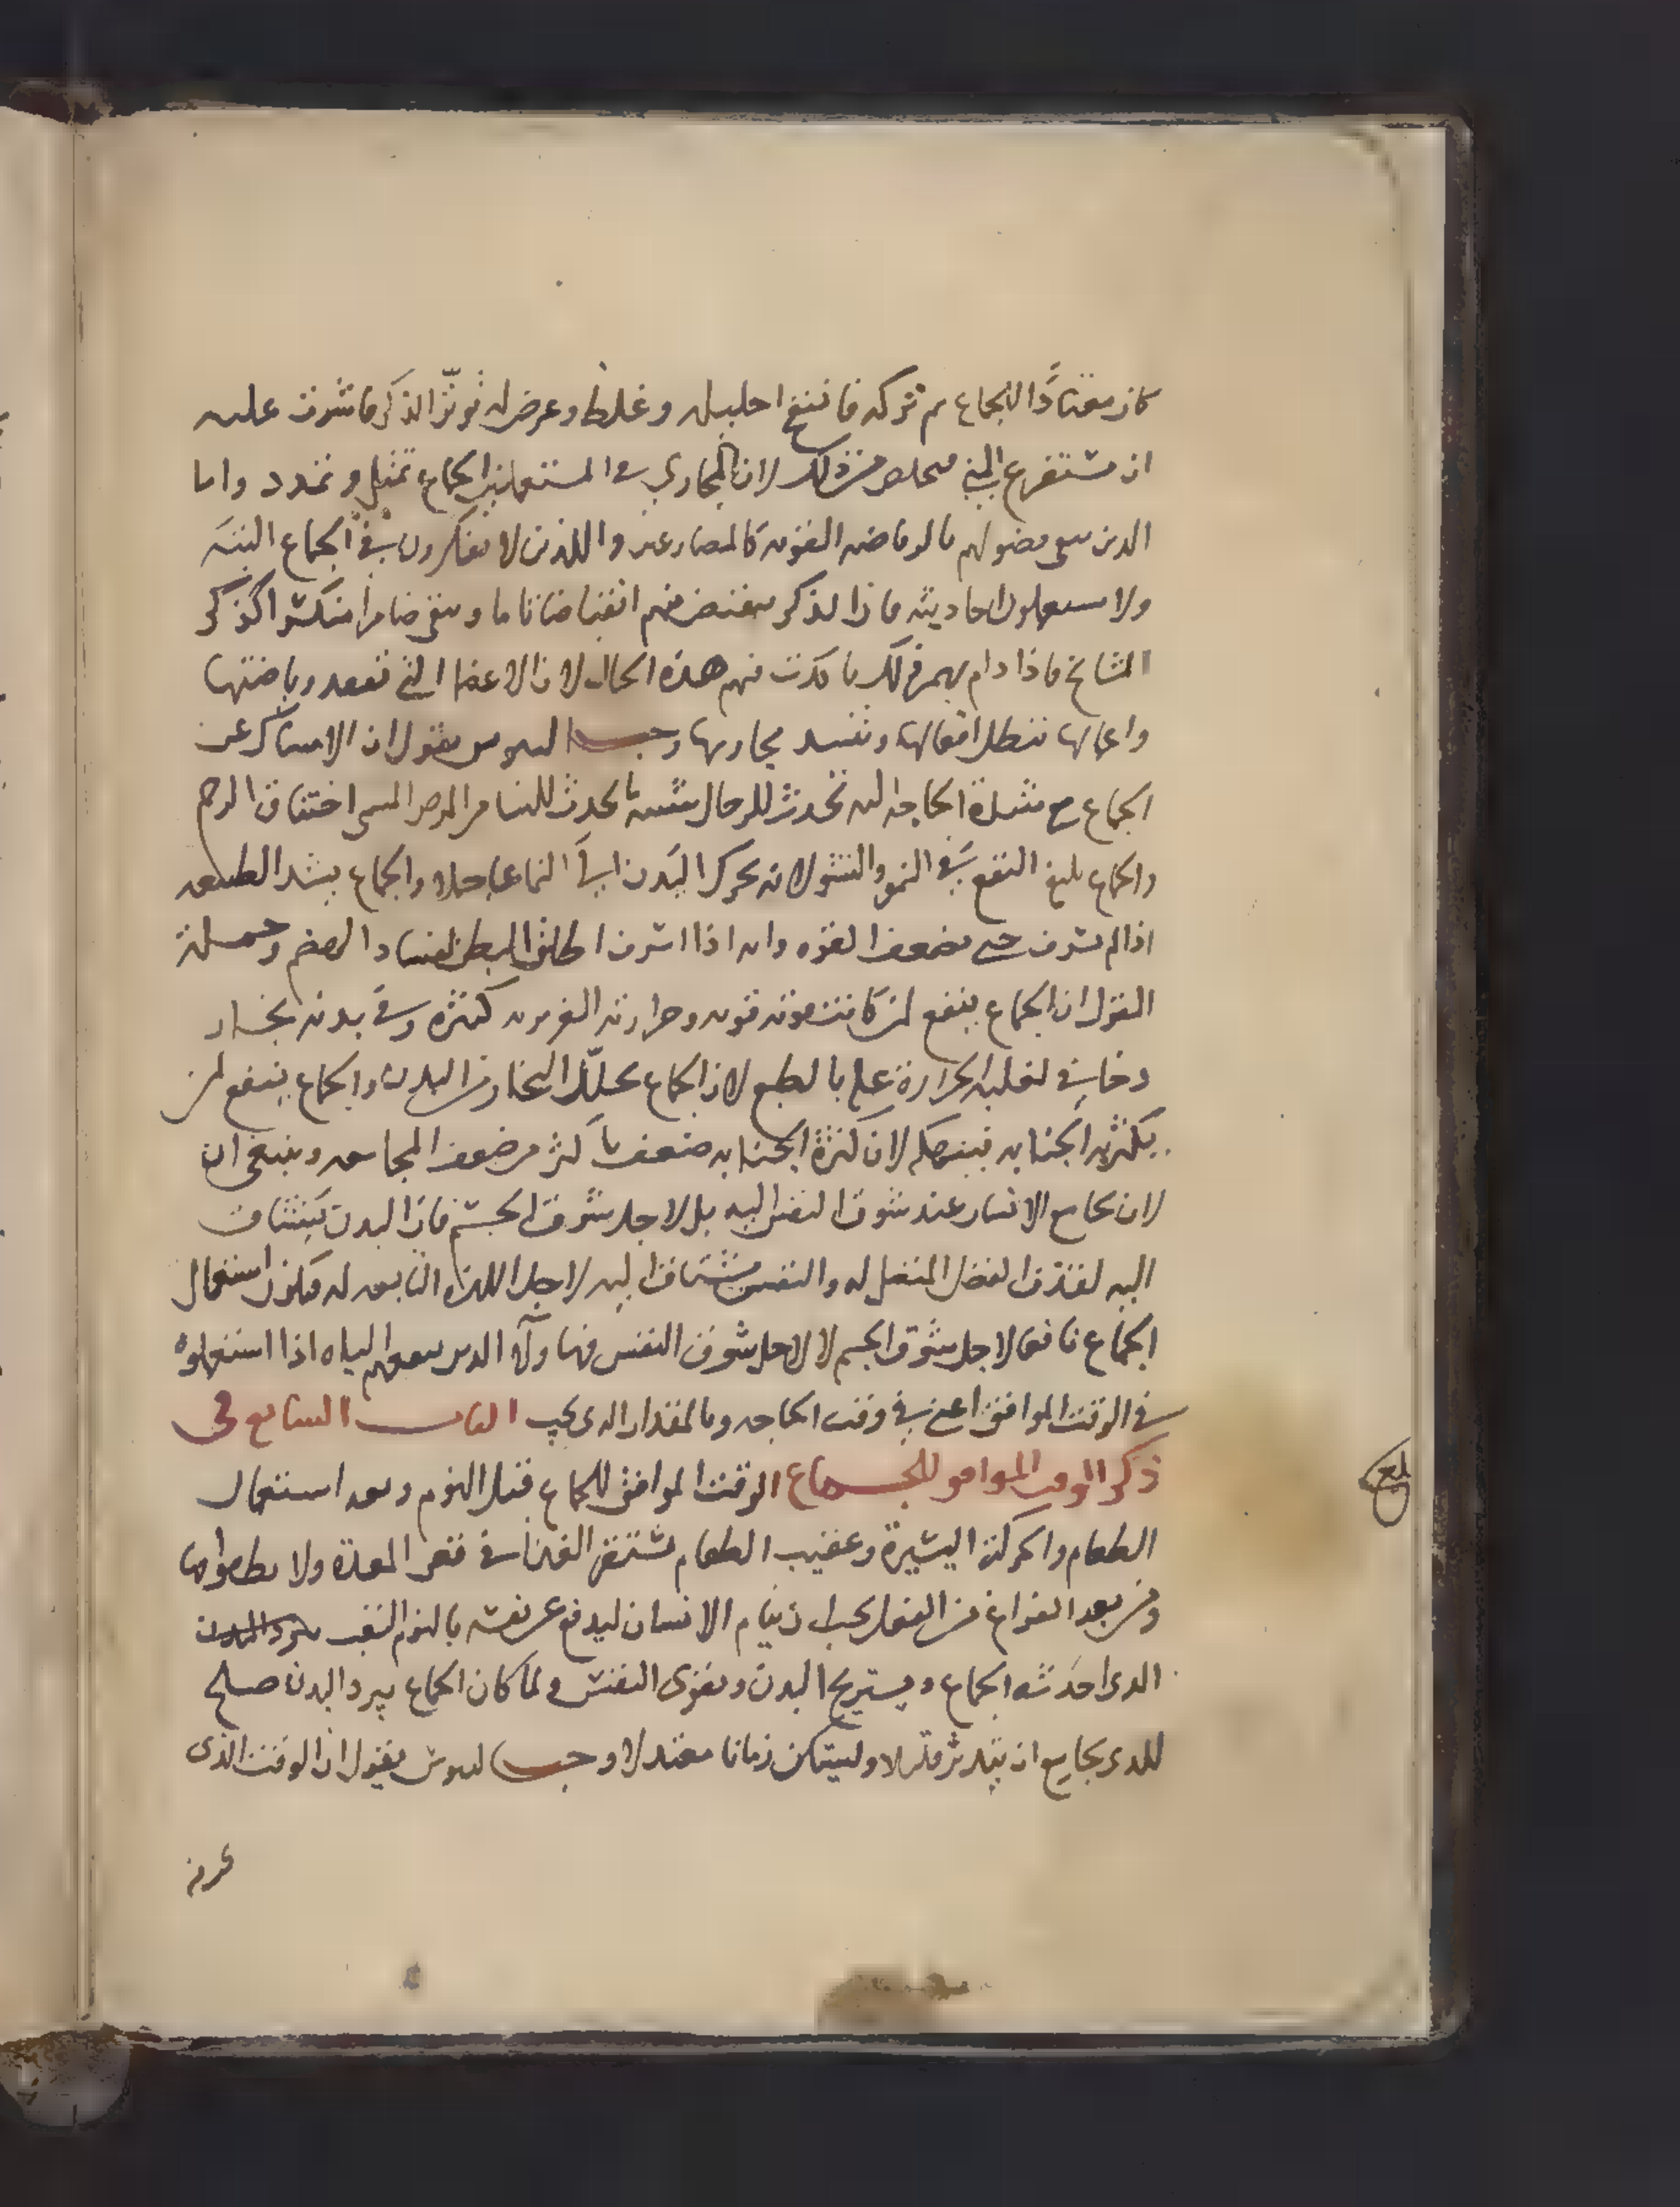 كان معتادًا للجماع ثم تركه فانتفخ احليله وغلظ وعرض له توتر الذكر فاشرت عليه
ان يستفرغ المني فتخلص من ذلك لان المجاري في المستعملين الجماع تمتلي وتمدد واما
الذين ينقى فضولهم بالرياضة القوية كالمصارعين واللذين لا يفكرون في الجماع البتة
ولا يستعملون احاديثه فان الذكر ينقبض منهم انقباضا تاما ويبقى ضامرا منكمشا كذكر
المشايخ فاذا دام بهم ذلك تاكدت فيهم هذه الحال لان الاعضا التي تفقد رياضتها
واعمالها تبطل افعالها وتفسد مجاريها وجالينوس يقول ان الامساك عن
الجماع مع شدة الحاجة اليه تحدث للرجال شبيه ما يحدث للنسا من المرض المسمى اختناق الرحم
والجماع بليغ النفع في النمو والنشو لانه يحرك البدن الي النما عاجلا والجماع يشد الطبيعه
اذا لم يسرف حتى يضعف القوه وانه اذا اسرف اطلق البطن لفساد الهضم وجملة
القول ان الجماع ينفع لمن كانت قوته قوية وحرارته الغريزية كثيره وفي بدنه بخار
دخاني لغلبة الحرارة عليه بالطبع لان الجماع يحلل البخار من البدن والجماع ينفع لمن
يكثر به الجنابه فينهكه لان كثرة الجنابه تضعف باكثر من ضعف المجامعه وينبغي ان
لان يجامع الانسان عند شوق النفس اليه بل لاجل شوق الجسم فان البدن يشتاق
اليه لقذف الفضل المثقل له والنفس تشتاق اليه لاجل اللذه التابعه له فيكون استعمال
الجماع نافعا لاجل شوق الجسم لا لاجل شوق النفس فهاولاء الذين ينفعهم الباه اذا استعملوه
في الوقت الموافق اعني في وقت الحاجه وبالمقدار الذي يجب الباب السابع في
ذكر الوقت الموافق للجماع الوقت الموافق للجماع قبل النوم وبعد استعمال
الطعام والحركة اليسيرة وعقيب الطعام يستقر الغذا في قعر المعدة ولا يطفوا بها
ومن بعد الفراغ من الفعل يجب ان ينام الانسان ليدفع عن نفسه بالنوم التعب
الذي احدثه الجماع ويستريح البدن وتقوى النفس ولما كان الجماع يبرد البدن صلح
للذي يجامع ان يتدثر قليلا وليتكن زمانا معتدلا وجالينوس يقول ان الوقت الذي
بلغ